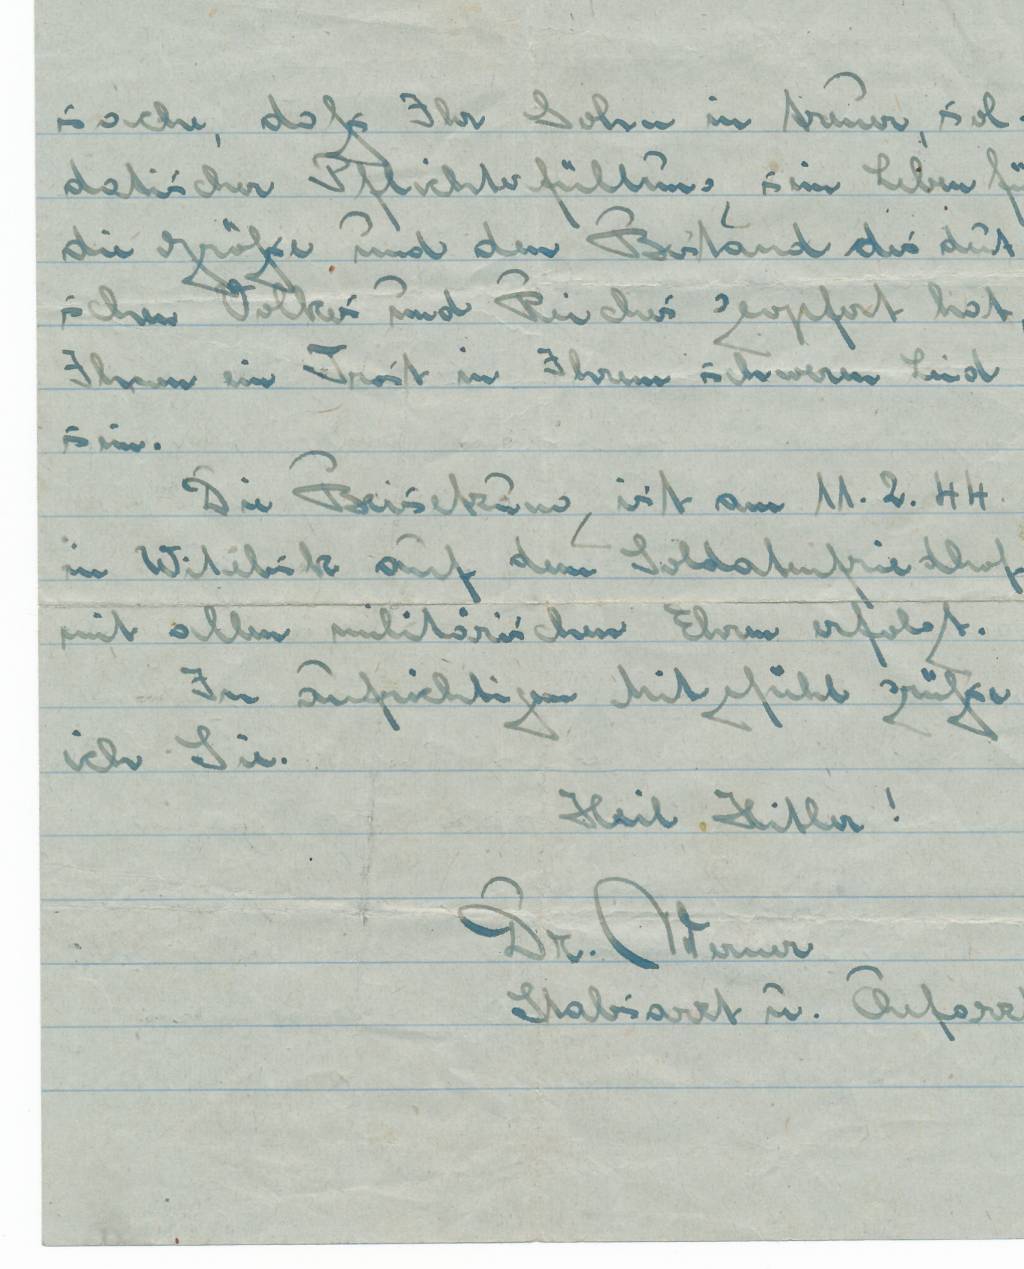 sache, daß Ihr Sohn in treuer, sol-
datischer Pflichterfüllung sein Leben fü
die Größe und den Bestand des deut
schen Volkes und Reiches geopfert hat,
Ihnen ein Trost in Ihrem schweren Leid
sein.
Die Beisetzung ist am 11.2.44.
in Witebsk auf dem Soldatenfriedhof
mit allen militärischen Ehren erfolgt.
In aufrichtigem Mitgefühl grüße
ich Sie.
Heil Hitler!
Dr. Werner
Stabsarzt u. Chefarzt